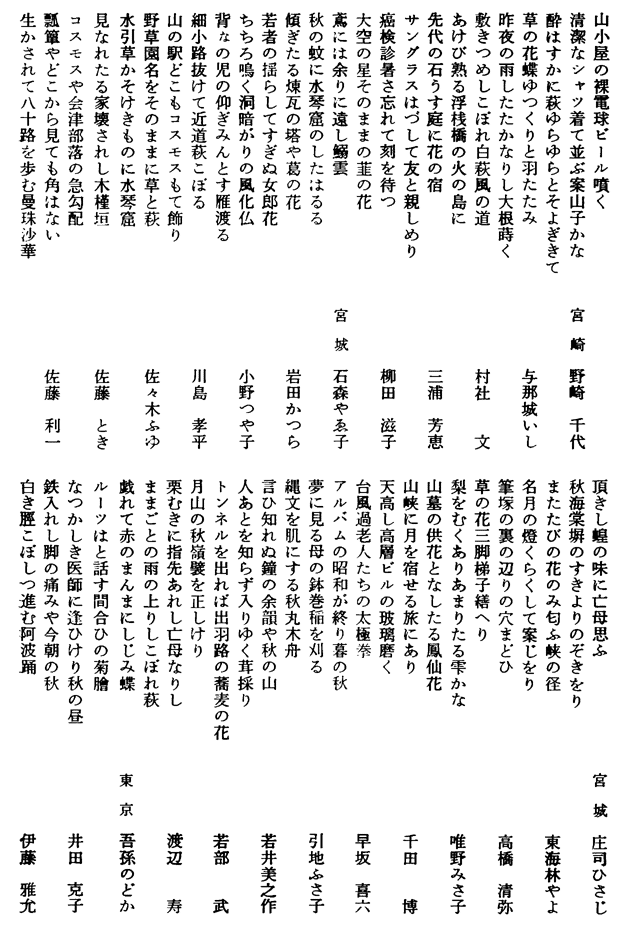 山小屋の裸電球ビール噴く
清潔なシャツ着て並ぶ案山子かな 宮崎 野崎 千代
酔はすかに萩ゆらゆらとそよぎきて
草の花蝶ゆつくりと羽たたみ 与那城いし
昨夜の雨したたかなりし大根蒔く
敷きつめしこぼれ白萩風の道 村社 文
あけび熟る浮桟橋の火の島に
先代の石うす庭に花の宿 三浦 芳恵
サングラスはづして友と親しめり
癌検診暑さ忘れて刻を待つ 柳田 滋子
大空の星そのままの韮の花
鳶には余りに遠し鰯雲 宮城 石森やゑ子
秋の蚊に水琴窟のしたはるる
傾ぎたる煉瓦の塔や葛の花 岩田かつら
若者の揺らしてすぎぬ女郎花
ちちろ鳴く洞暗がりの風化仏 小野つや子
背なの児の仰ぎみんとす雁渡る
細小路抜けて近道萩こぼる 川島 孝平
山の駅どこもコスモスもて飾り
野草園名をそのままに草と萩 佐々木ふゆ
水引草かそけきものに水琴窟
見なれたる家壊されし木槿垣 佐藤 とき
コスモスや会津部落の急勾配
瓢箪やどこから見ても角はない 佐藤 利一
生かされて八十路を歩む曼珠沙華
頂きし蝗の味に亡母思ふ 宮城 庄司ひさじ
秋海棠塀のすきよりのぞきをり
またたびの花のみ匂ふ峡の径 東海林やよ
名月の燈くらくして案じをり
筆塚の裏の辺りの穴まどひ 高橋 清弥
草の花三脚梯子繕へり
梨をむくありあまりたる雫かな 唯野みさ子
山墓の供花となしたる鳳仙花
山峡に月を宿せる旅にあり 千田 博
天高し高層ビルの玻璃磨く
台風過老人たちの太極拳 早坂 喜六
アルバムの昭和が終り暮の秋
夢に見る母の鉢巻稲を刈る 引地ふさ子
縄文を肌にする秋丸木舟
言ひ知れぬ鐘の余韻や秋の山 若井美之作
人あとを知らず入りゆく茸採り
トンネルを出れば出羽路の蕎麦の花 若部 武
月山の秋嶺襞を正しけり
栗むきに指先あれし亡母なりし 渡辺 寿
ままごとの雨の上りしこぼれ萩
戯れて赤のまんまにしじみ蝶 東京 吾孫のどか
ルーツはと話す間合ひの菊膾
なつかしき医師に逢ひけり秋の昼 井田 克子
鉄入れし脚の痛みや今朝の秋
白き脛こぼしつ進む阿波踊 伊藤 雅允